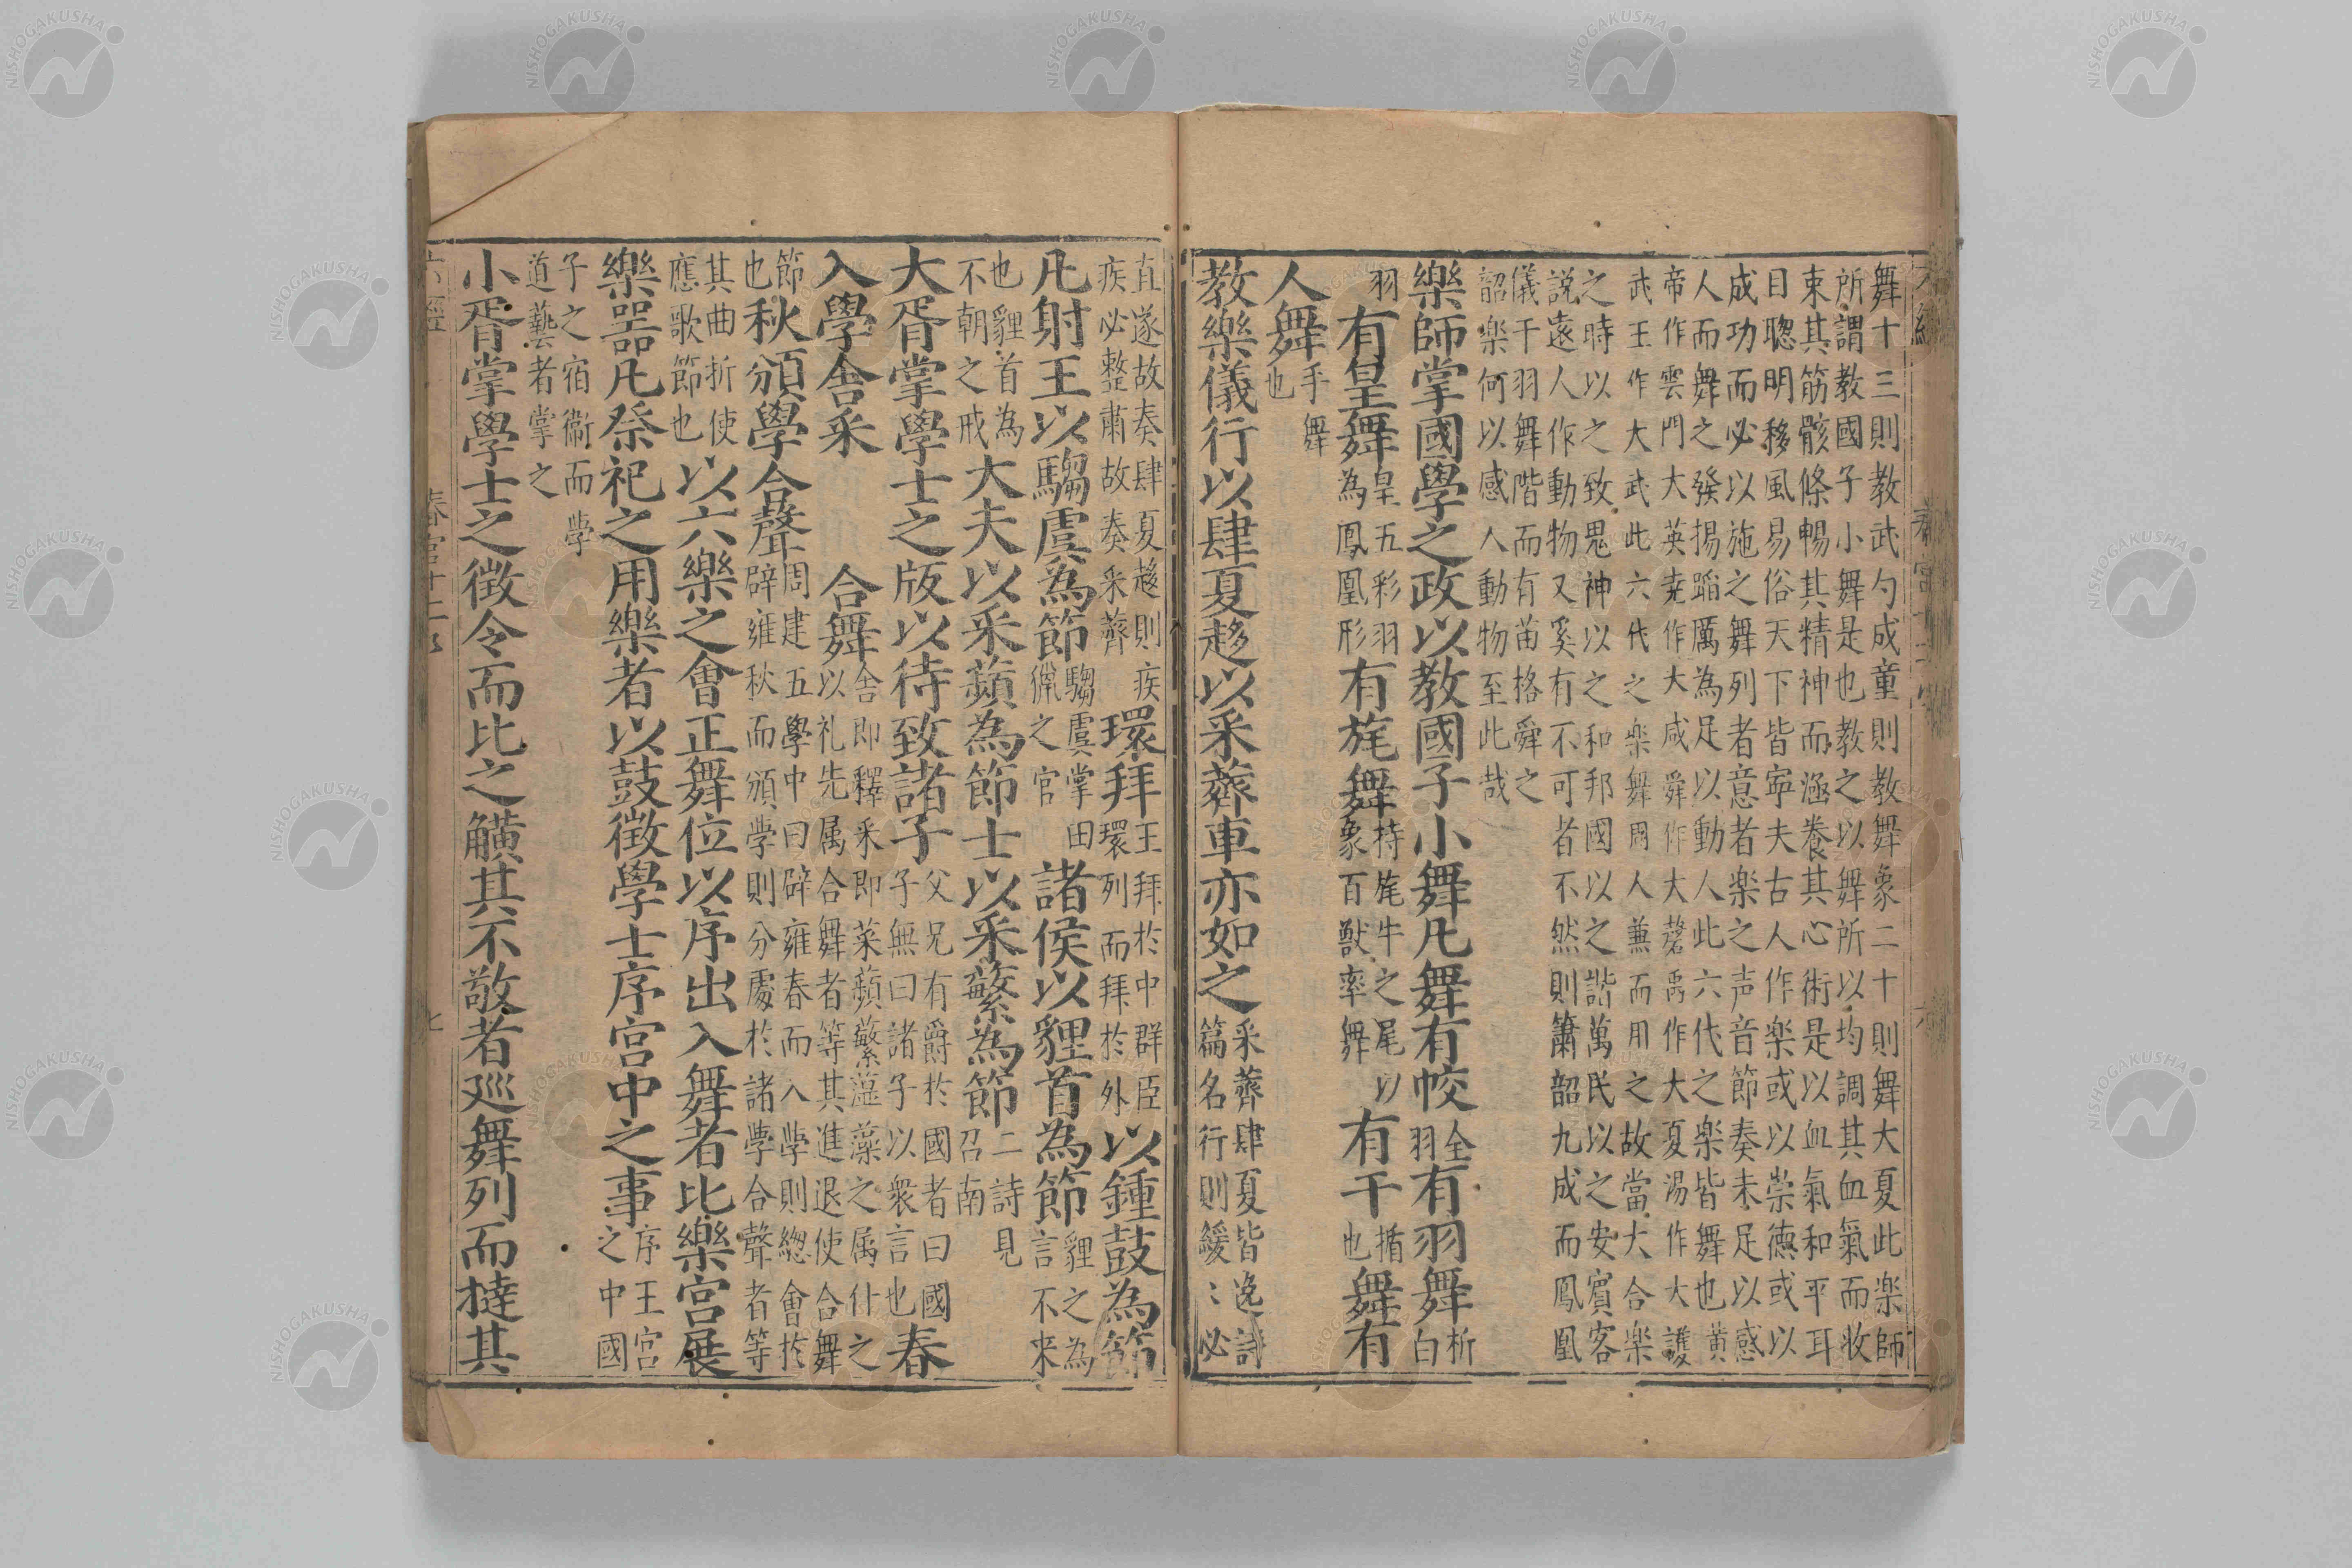 舞十三則教武勺成童則教舞象二十則舞大夏此楽師
所謂教國子小舞是也教之以舞所以均調其血氣而收
束其筋骸條暢其精神而涵養其心術是以血氣和平耳
目聰明移風易俗天下皆寧夫古人作楽或以崇德或以
成功而必以施之舞列者意者楽之声音節奏未足以感
人而舞之發揚蹈厲為足以動人此六代之楽皆舞也黄
帝作雲門大英尭作大咸舜作大磬禹作大夏湯作大護
武王作大武此六代之楽舞周人兼而用之故當大合楽
之時以之致鬼神以之和邦國以之諧萬民以之安賓客
説遠人作動物又奚有不可者不然則簫韶九成而鳳凰
儀干羽舞階而有苗格舜之
韶楽何以感人動物至此哉
樂師掌國學之政以教國子小舞凡舞有帗全羽有羽舞析白
羽有皇舞皇五彩羽為鳳凰形有旄舞持旄牛之尾以象百獸率舞有干楯也舞有
人舞手舞也
教樂儀行以肆夏趍以采薺車亦如之采薺肆夏皆逸詩篇名行則緩〻必
直遂故奏肆夏趍則疾疾必整肅故奏采薺環拜王拜於中群臣環列而拜於外以鍾鼓為節
凡射王以騶虞為節騶虞掌田獵之官諸侯以貍首為節貍之為言不来
也貍首為不朝之戒大夫以采蘋為節士以采蘩為節二詩見召南
大胥掌學士之版以待致諸子父兄有爵於國者曰國子無曰諸子以衆言也春
入學舍采合舞舍即釋采即菜蘋蘩薀藻之属什之以礼先属合舞者等其進退使合舞
節也秋頒學合聲周建五學中曰辟雍春而入学則緫會於辟雍秋而頒学則分處於諸学合聲者等
其曲折使應歌節也以六樂之會正舞位以序出入舞者比樂宫展
樂噐凡祭祀之用樂者以鼓徵學士序宫中之事序王宫之中國
子之宿衞而學道藝者掌之
小胥掌學士之徵令而比之觵其不敬者廵舞列而撻其
NISHOGAKUSHA